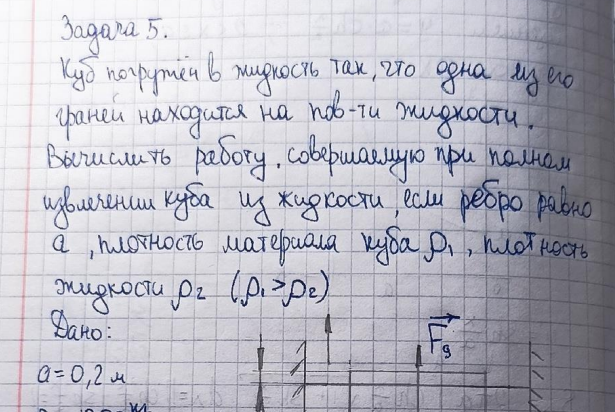 Задача 5.
Куб погружён в жидкость так, что одна из его
граней находится на пов-ти жидкости.
Вычислить работу, совершаемую при полном
извлечении куба из жидкости, если ребро равно
a, плотность материала куба ρ₁, плотность
жидкости ρ₂ (ρ₁>ρ₂)
Дано:
a=0,2 м